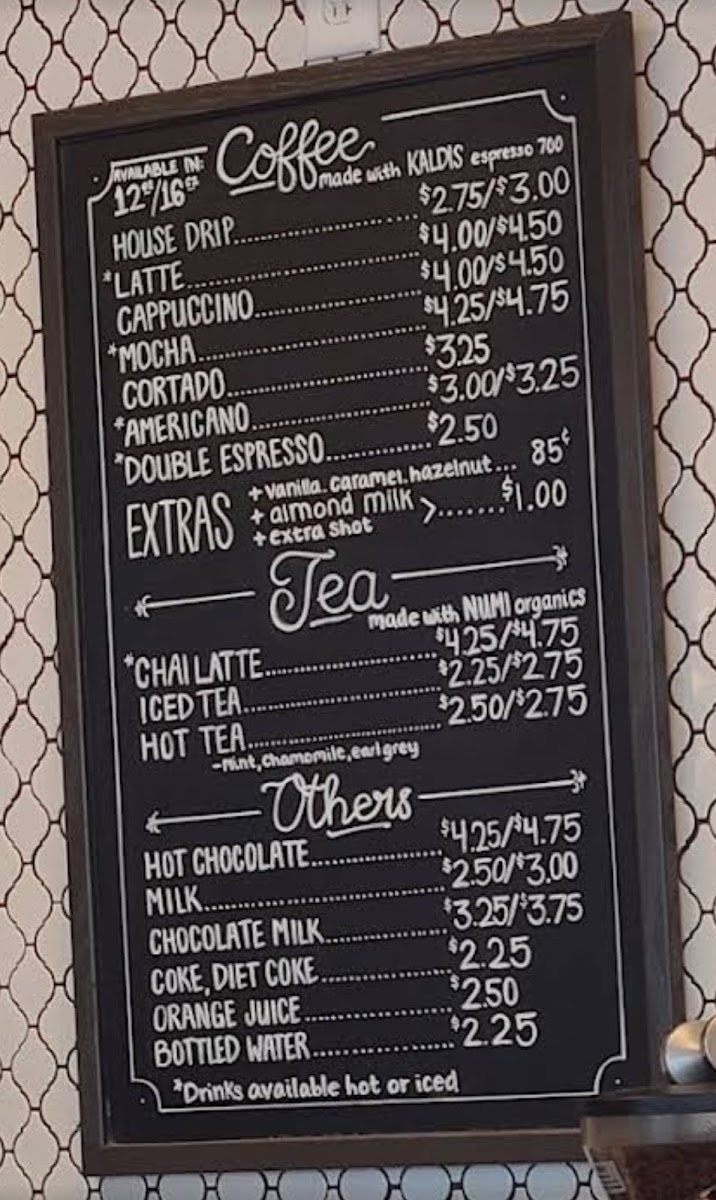 AVAILABLE IN:
12oz/16oz
Coffee
made with KALDIS espresso 700
HOUSE DRIP.................... $2.75/$3.00
*LATTE.................... $4.00/$4.50
CAPPUCCINO.................... $4.00/$4.50
*MOCHA.................... $4.25/$4.75
CORTADO.................... $3.25
*AMERICANO.................... $3.00/$3.25
*DOUBLE ESPRESSO............. $2.50
EXTRAS
+ vanilla. caramel. hazelnut... 85¢
+ almond milk
+ extra shot >....... $1.00
Tea
made with NUMI organics
*CHAI LATTE.................... $4.25/$4.75
ICED TEA.................... $2.25/$2.75
HOT TEA.................... $2.50/$2.75
-mint, chamomile, earl grey
Others
HOT CHOCOLATE................ $4.25/$4.75
MILK.................... $2.50/$3.00
CHOCOLATE MILK............... $3.25/$3.75
COKE, DIET COKE................ $2.25
ORANGE JUICE................. $2.50
BOTTLED WATER................. $2.25
*Drinks available hot or iced